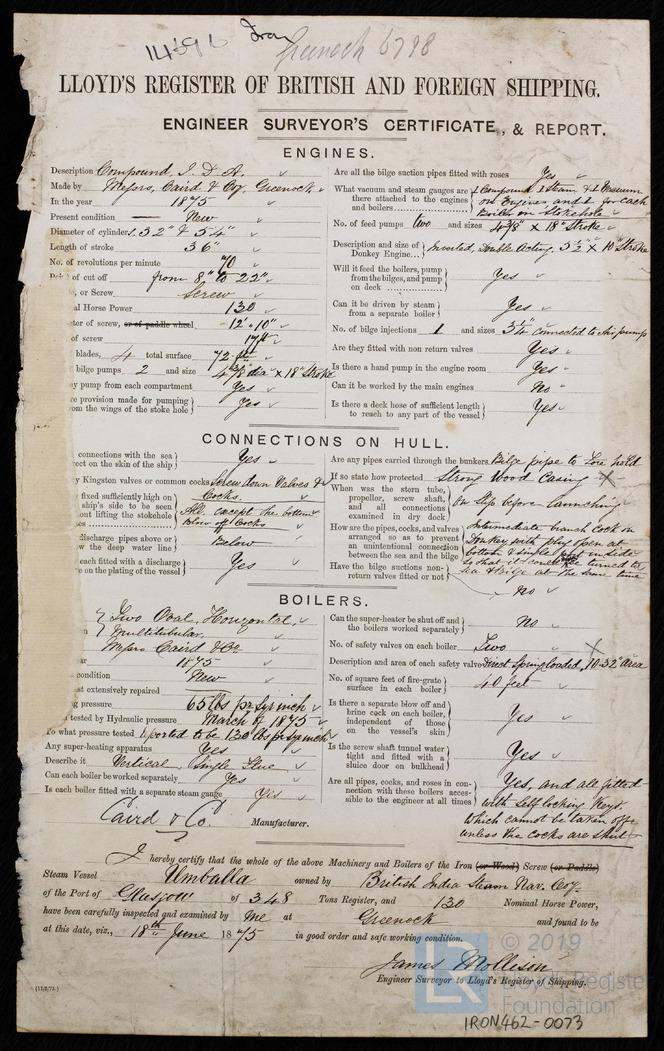 14596 Iron Greenock 6798
LLOYD'S REGISTER OF BRITISH AND FOREIGN SHIPPING.
ENGINEER SURVEYOR'S CERTIFICATE, & REPORT.
ENGINES.
Description Compound, I. D. A.
Made by Messrs, Caird & Coy, Greenock.
In the year 1875
Present condition — New
Diameter of cylinders 32" & 54"
Length of stroke 36"
No. of revolutions per minute 70
of cut off from 8" to 22"
, or Screw Screw
al Horse Power 130
ter of screw, or of paddle wheel 12' 10"
of screw 17 ft
blades, 4 total surface 72 ft
bilge pumps 2 and size 4 3/8 dia × 18" Stroke
y pump from each compartment Yes
e provision made for pumping om the wings of the stoke hole Yes
Are all the bilge suction pipes fitted with roses Yes
What vacuum and steam gauges are there attached to the engines and boilers 1 Compound 1 Steam & 1 Vacuum
on Engines, and 1 for each
Boiler on Stokehole
No. of feed pumps two and sizes 4 3/8" × 18" Stroke
Description and size of Donkey Engine Inverted, Double Acting. 5 1/2" × 10" Stroke
Will it feed the boilers, pump from the bilges, and pump on deck Yes
Can it be driven by steam from a separate boiler Yes
No. of bilge injections 1 and sizes 3 1/2" connected to this pump
Are they fitted with non return valves Yes
Is there a hand pump in the engine room Yes
Can it be worked by the main engines No
Is there a deck hose of sufficient length to reach to any part of the vessel Yes
CONNECTIONS ON HULL.
connections with the sea rect on the skin of the ship Yes
y Kingston valves or common cocks Screw down Valves &
Cocks.
fixed sufficiently high on ship's side to be seen out lifting the stokehole es All except the bottom
Blow off Cocks
discharge pipes above or w the deep water line Below
each fitted with a discharge e on the plating of the vessel Yes
Are any pipes carried through the bunkers Bilge pipe to Fore hold
If so state how protected Strong Wood Casing
When was the stern tube, propellor, screw shaft, and all connections examined in dry dock On Slip before Launching
How are the pipes, cocks, and valves arranged so as to prevent an unintentional connection between the sea and the bilge Intermediate branch Cock on
Donkey with plug open at
bottom & single port in side
so that it cannot be turned to
sea & bilge at the same time
Have the bilge suctions non-return valves fitted or not No
BOILERS.
Two Oval, Horizontal,
n Multitubular.
Messrs Caird & Co
ar 1875
condition New
st extensively repaired
g pressure 65 lbs pr Sq inch
tested by Hydraulic pressure March of 1875
To what pressure tested reported to be 130 lbs pr Sq inch
Any super-heating apparatus Yes
Describe it Vertical Single Flue
Can each boiler be worked separately Yes
Is each boiler fitted with a separate steam gauge Yes
Caird & Co. Manufacturer.
Can the super-heater be shut off and the boilers worked separately No
No. of safety valves on each boiler Two
Description and area of each safety valve Direct Spring loaded, 10·32" area
No. of square feet of fire-grate surface in each boiler 40 feet
Is there a separate blow off and brine cock on each boiler, independent of those on the vessel's skin Yes
Is the screw shaft tunnel water tight and fitted with a sluice door on bulkhead Yes
Are all pipes, cocks, and roses in connection with these boilers accessible to the engineer at all times Yes, and all fitted
with Self locking Keys.
Which cannot be taken off
unless the cocks are shut
I hereby certify that the whole of the above Machinery and Boilers of the Iron (or Wood) Screw (or Paddle)
Steam Vessel Umballa owned by British India Steam Nav. Coy.
of the Port of Glasgow of 348 Tons Register, and 130 Nominal Horse Power,
have been carefully inspected and examined by Me at Greenock and found to be
at this date, viz., 18th June 1875 in good order and safe working condition.
James Mollison
Engineer Surveyor to Lloyd's Register of Shipping.
© 2019
Lloyd's Register
Foundation
LR
IRON462-0073